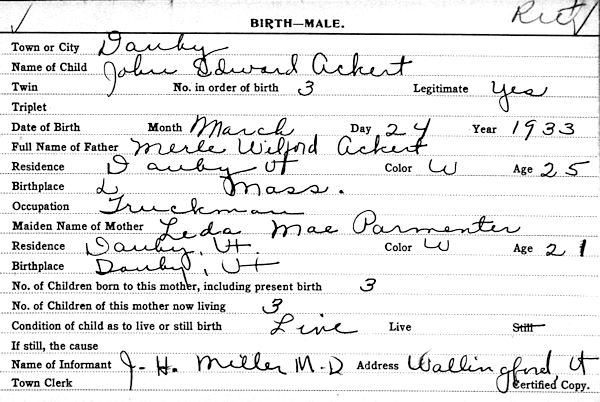 BIRTH—MALE.
Town or City Danby
Name of Child John Edward Ackert
Twin No. in order of birth 3 Legitimate Yes
Triplet
Date of Birth Month March Day 24 Year 1933
Full Name of Father Merle Wilford Ackert
Residence Danby Vt Color W Age 25
Birthplace Mass.
Occupation Truckman
Maiden Name of Mother Leda Mae Parmenter
Residence Danby, Vt. Color W Age 21
Birthplace Danby, Vt
No. of Children born to this mother, including present birth 3
No. of Children of this mother now living 3
Condition of child as to live or still birth Live Live Still
If still, the cause
Name of Informant J. H. Miller M.D Address Wallingford, Vt
Town Clerk Certified Copy.